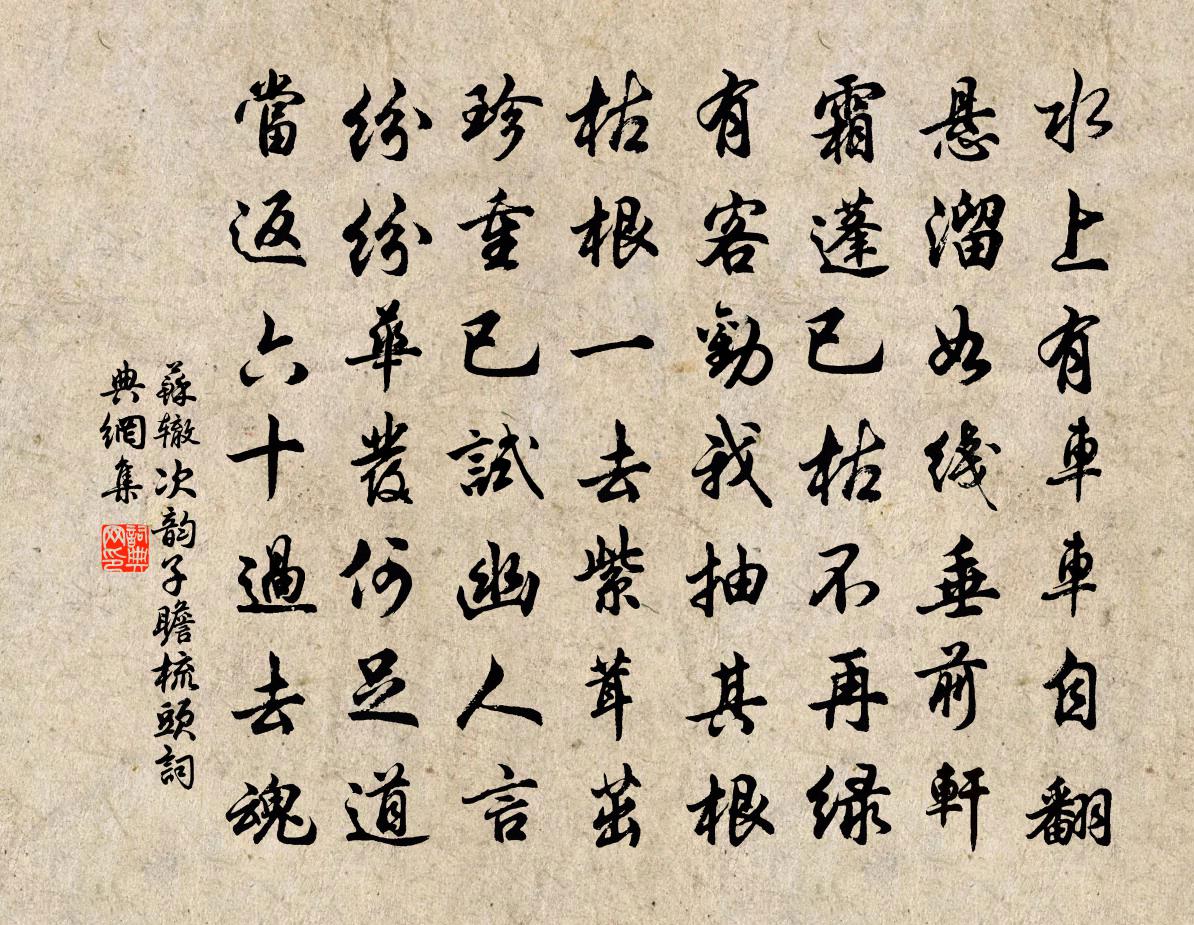 水上有車車自翻
悬溜如线垂前軒
霜蓬已枯不再绿
有客勸我抽其根
枯根一去紫茸茁
珍重已試幽人言
紛紛華發何足道
當返六十過去魂
蘇辙次韵子瞻梳頭詞
典網集
詞典
网印